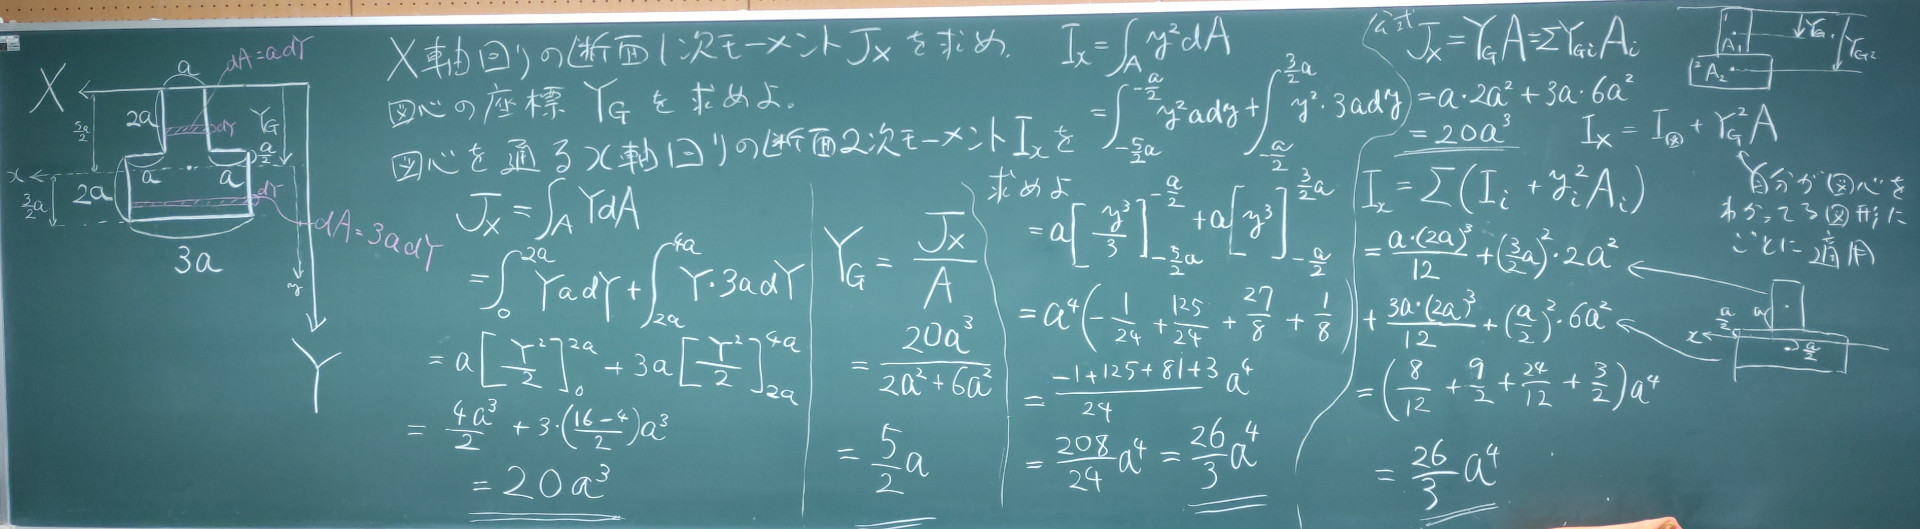 X軸回りの断面1次モーメントJxを求め、
図心の座標 Y_Gを求めよ。
図心を通るx軸回りの断面2次モーメントIxを
求めよ
X
a
dA=adY
2a
dY
Y_G
5a/2
a/2
a
a
x
2a
3/2a
dY
dA=3adY
3a
y
Y
Jx=∫_A YdA
=∫_0^{2a} YadY+∫_{2a}^{4a} Y・3adY
=a[Y²/2]_0^{2a}+3a[Y²/2]_{2a}^{4a}
=4a³/2+3・(16-4/2)a³
=20a³
Y_G=Jx/A
=20a³/2a²+6a²
=5/2a
Ix=∫_A y²dA
=∫_{-5/2a}^{-a/2} y²ady+∫_{-a/2}^{3/2a} y²・3ady
=a[y³/3]_{-5/2a}^{-a/2}+a[y³]_{-a/2}^{3/2a}
=a⁴(-1/24+125/24+27/8+1/8)
=-1+125+81+3/24a⁴
=208/24a⁴=26/3a⁴
公式
Jx=Y_GA=ΣY_{Gi}A_i
=a・2a²+3a・6a²
=20a³
Ix=I_図+Y_G²A
自分が図心を
わかってる図形
ごとに適用
Ix=Σ(I_i+y_i²A_i)
=a・(2a)³/12+(3/2a)²・2a²
+3a・(2a)³/12+(a/2)²・6a²
=(8/12+9/2+24/12+3/2)a⁴
=26/3a⁴
A₁
A₂
Y_{G1}
Y_{G2}
a/2
a
x
a/2